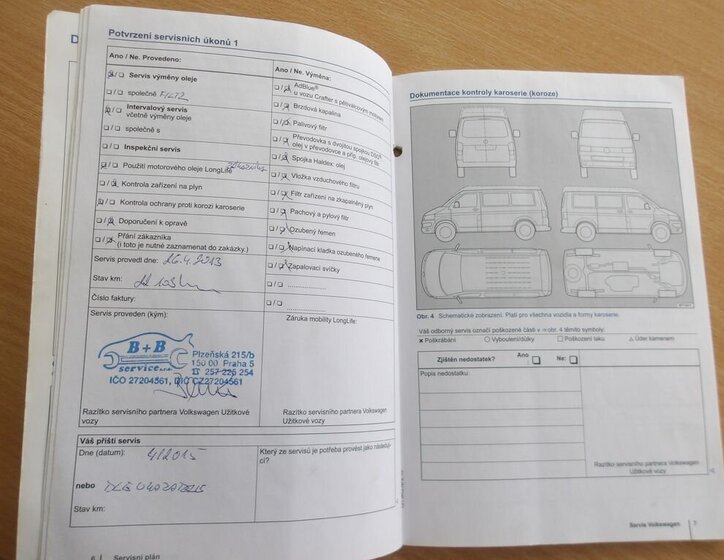 Potvrzení servisních úkonů 1
Ano / Ne. Provedeno:
Servis výměny oleje
společně FILTR
Intervalový servis
včetně výměny oleje
společně s
Inspekční servis
Použití motorového oleje LongLife
Kontrola zařízení na plyn
Kontrola ochrany proti korozi karoserie
Doporučení k opravě
Přání zákazníka
(i toto je nutné zaznamenat do zakázky.)
Servis provedl dne: 26.4.2013
Stav km:
Číslo faktury:
Servis proveden (kým):
B+B
service s.r.o.
Plzeňská 215/b
150 00 Praha 5
☎ 257 225 254
IČO 27204561, DIČ CZ27204561
Razítko servisního partnera Volkswagen Užitkové
vozy
Ano / Ne. Výměna:
AdBlue®
u vozu Crafter s pětiválcovým motorem
Brzdová kapalina
Palivový filtr
Převodovka s dvojitou spojkou DSG®:
olej v převodovce a příp. olejový filtr
Spojka Haldex: olej
Vložka vzduchového filtru
Filtr zařízení na zkapalněný plyn
Pachový a pylový filtr
Ozubený řemen
Napínací kladka ozubeného řemene
Zapalovací svíčky
Záruka mobility LongLife:
Razítko servisního partnera Volkswagen Užitkové
vozy
Váš příští servis
Dne (datum): 4/2015
nebo DLE UKAZATELE
Stav km:
Který ze servisů je potřeba provést jako následují-
cí?
6 | Servisní plán
Dokumentace kontroly karoserie (koroze)
Obr. 4 Schematické zobrazení. Platí pro všechna vozidla a formy karoserie.
Váš odborný servis označí poškozené části v ⇒ obr. 4 těmito symboly:
× Poškrábání ○ Vyboulení/důlky □ Poškození laku △ Úder kamenem
Zjištěn nedostatek? Ano Ne:
Popis nedostatku:
Razítko servisního partnera Volkswagen
Užitkové vozy
Servis Volkswagen | 7